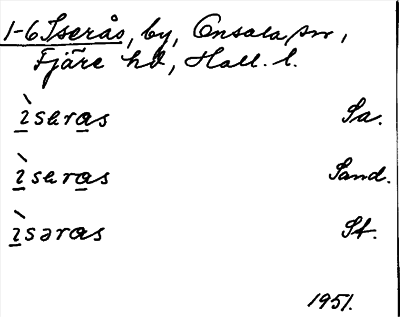 1-6 Iserås, by, Onsala sn,
Fjäre hd, Hall. l.
ìseras Sa.
ìseras Sand.
ìsəras St.
1951.